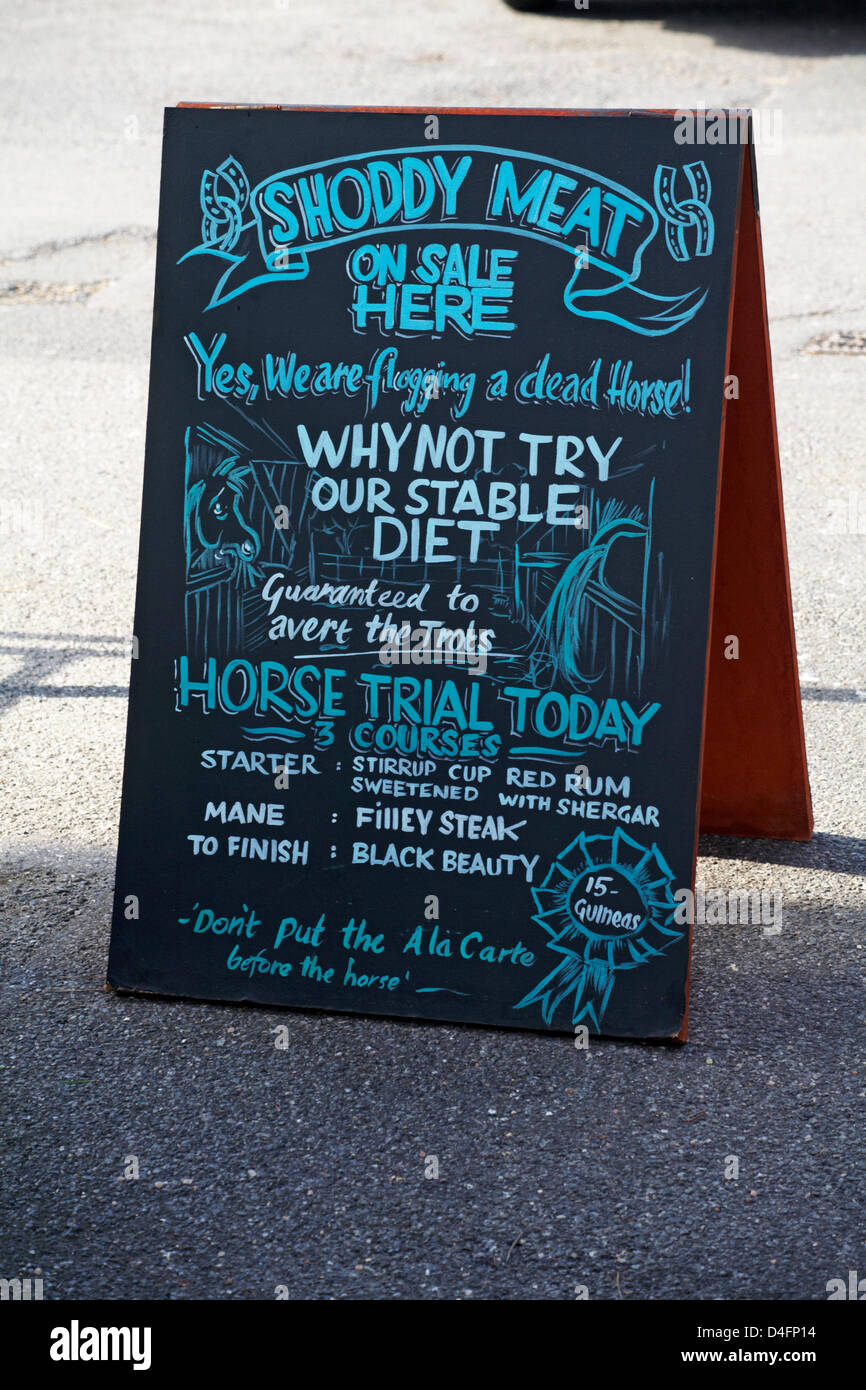 SHODDY MEAT
ON SALE
HERE
Yes, We are flogging a dead Horse!
WHY NOT TRY
OUR STABLE
DIET
Guaranteed to
avert the Trots
HORSE TRIAL TODAY
3 COURSES
STARTER : STIRRUP CUP RED RUM
SWEETENED WITH SHERGAR
MANE : FillEY STEAK
TO FINISH : BLACK BEAUTY
15-
Guineas
-'Don't Put the A la Carte
before the horse'-
alamy
Image ID: D4FP14
www.alamy.com